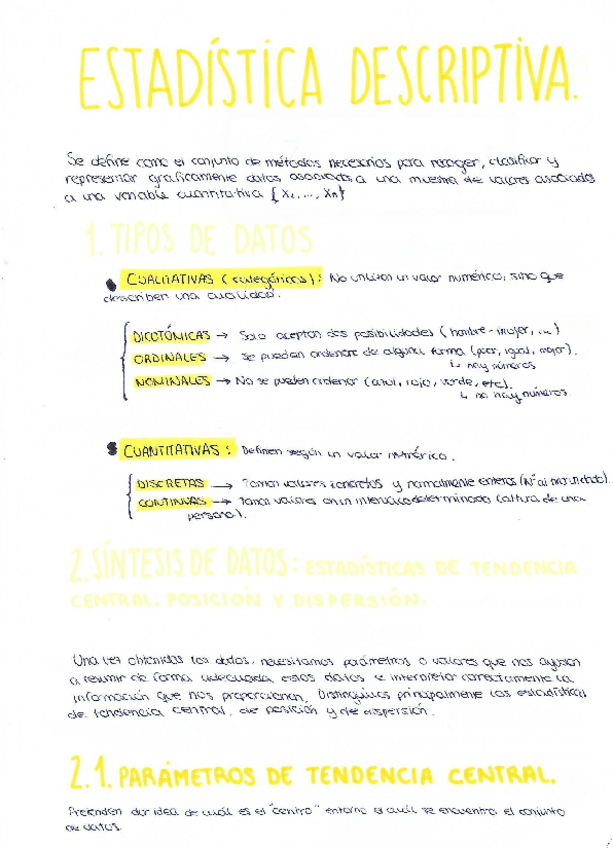 ESTADÍSTICA DESCRIPTIVA.
Se define como el conjunto de métodos necesarios para recoger, clasificar y
representar graficamente datos asociados a una muestra de valores asociados
a una variable cuantitativa { X₁, ..., Xn}
1. TIPOS DE DATOS
CUALITATIVAS (categóricas): No utilizan un valor numérico, sino que
describen una cualidad.
DICOTÓMICAS → Solo aceptan dos posibilidades (hombre-mujer, ...)
ORDINALES → Se pueden ordenar de alguna forma (peor, igual, mejor).
↳ hay números
NOMINALES → No se pueden ordenar (azul, rojo, verde, etc).
↳ no hay números
CUANTITATIVAS: Definen según un valor numérico.
DISCRETAS → Toman valores concretos y normalmente enteros (Nº
CONTINUAS → Toman valores en un intervalo determinado (altura de una
persona).
2. SÍNTESIS DE DATOS: ESTADÍSTICAS DE TENDENCIA
CENTRAL, POSICIÓN Y DISPERSIÓN.
Una vez obtenidos los datos, necesitamos parámetros o valores que nos ayuden
a resumir de forma adecuada estos datos e interpretar correctamente la
información que nos proporcionan. Distinguimos principalmente las estadísticas
de tendencia central, de posición y de dispersión.
2.1. PARÁMETROS DE TENDENCIA CENTRAL.
Pretenden dar idea de cuál es el "centro" entorno al cuál se encuentra el conjunto
de datos.